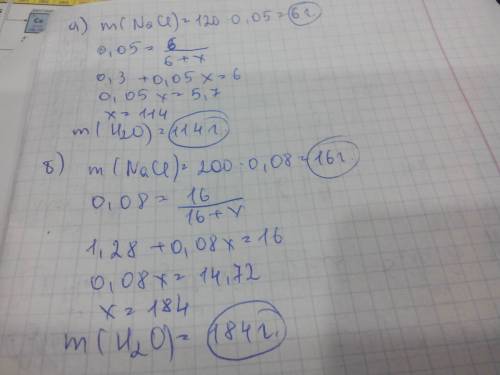 а) m(NaCl)= 120 · 0,05 = 6 г.
0,05 = 6/(6+x)
0,3 + 0,05x = 6
0,05x = 5,7
x = 114
m(H₂O) = 114 г.
б) m(NaCl)= 200 · 0,08 = 16 г.
0,08 = 16/(16+x)
1,28 + 0,08x = 16
0,08x = 14,72
x = 184
m(H₂O) = 184 г.